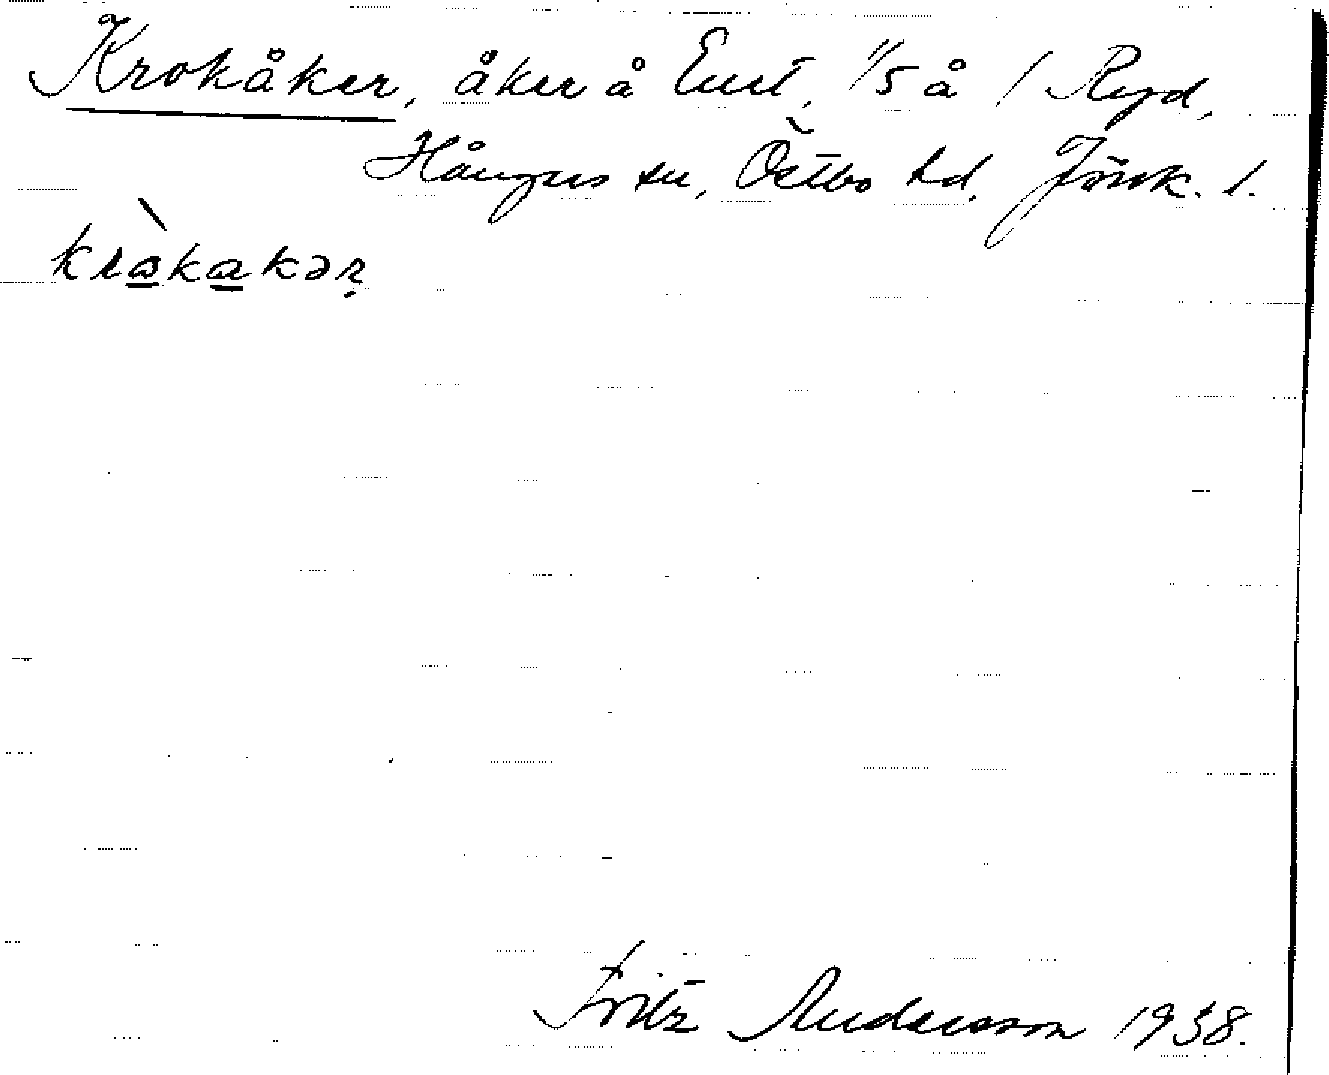 Krokåker, åker å Enet, 1/5 å 1 Ryd,
Hångers sn, Östbo hd, Jönk. l.
kràkakər
Fritz Andersson 1938.